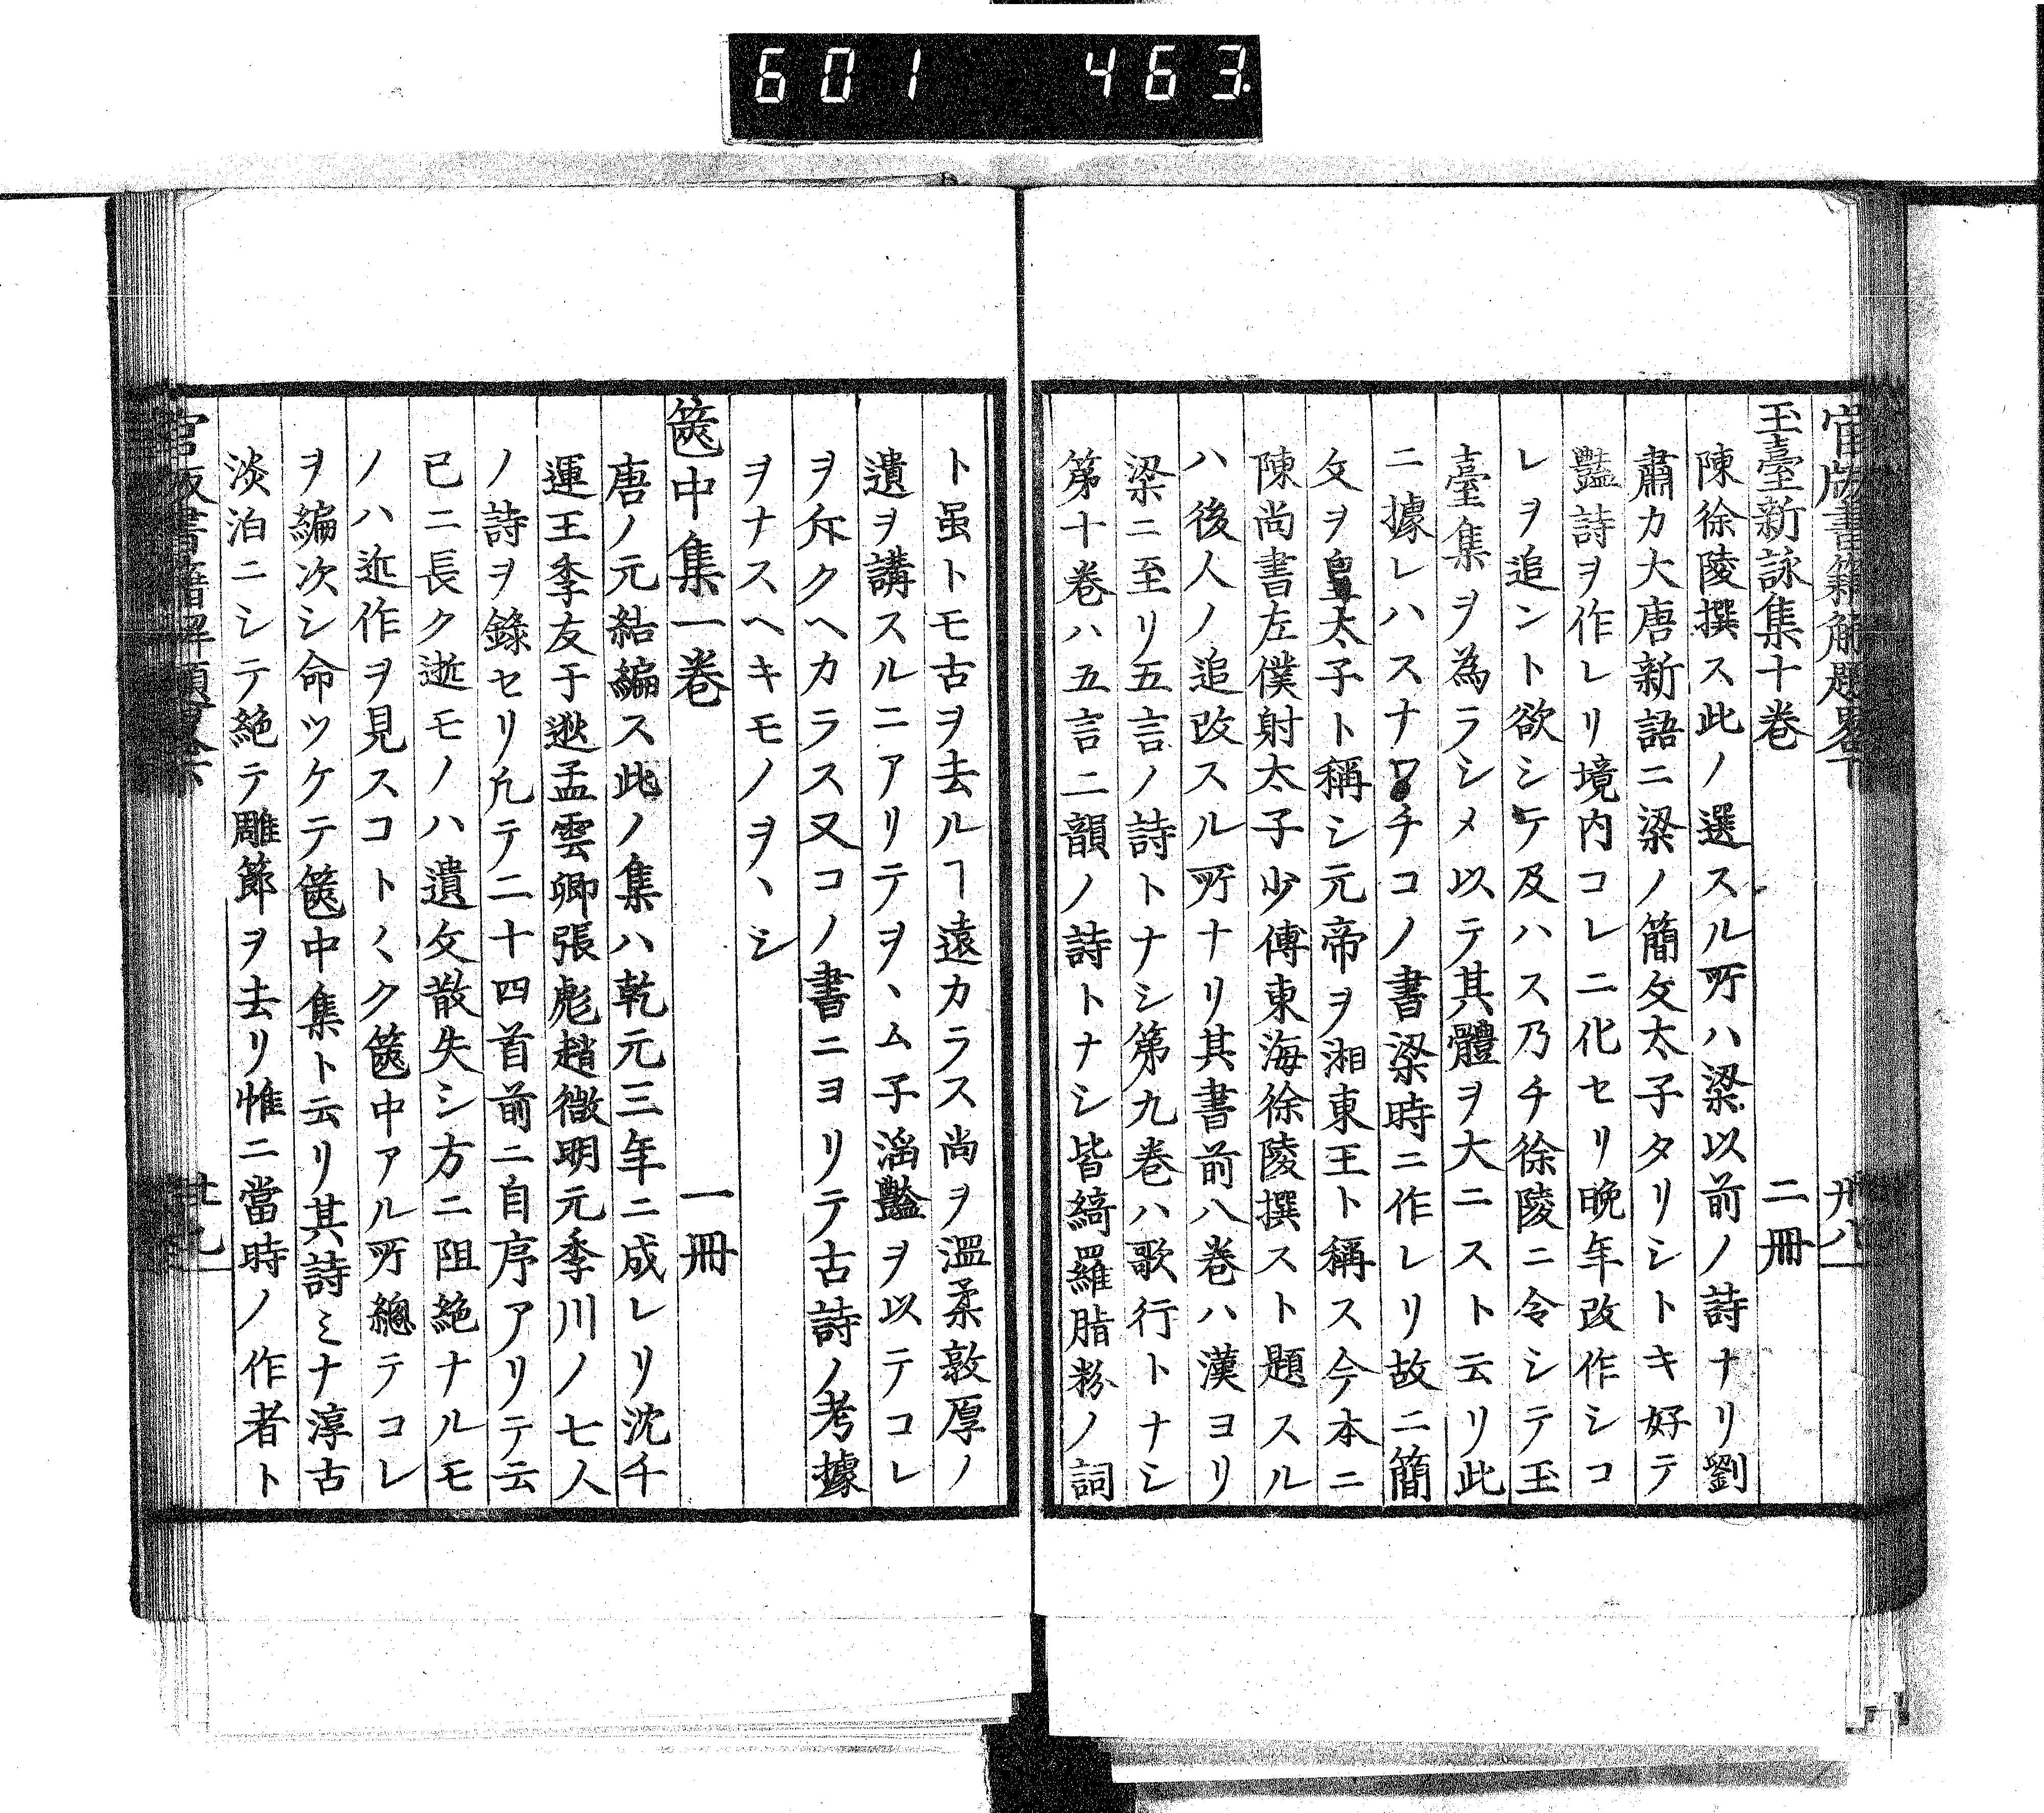 601 463
官版書籍解題畧下 卅八
玉臺新詠集十卷 二冊
陳徐陵撰ス此ノ選スル所ハ梁以前ノ詩ナリ劉
肅カ大唐新語ニ梁ノ簡文太子タリシトキ好テ
豔詩ヲ作レリ境内コレニ化セリ晩年改作シコ
レヲ追ント欲シテ及ハス乃チ徐陵ニ令シテ玉
臺集ヲ為ラシメ以テ其體ヲ大ニスト云リ此
ニ據レハスナワチコノ書梁時ニ作レリ故ニ簡
文ヲ皇太子ト稱シ元帝ヲ湘東王ト稱ス今本ニ
陳尚書左僕射太子少傅東海徐陵撰スト題スル
ハ後人ノ追改スル所ナリ其書前八巻ハ漢ヨリ
梁ニ至リ五言ノ詩トナシ第九巻ハ歌行トナシ
第十巻ハ五言二韻ノ詩トナシ皆綺羅脂粉ノ詞
ト虽トモ古ヲ去ルヿ遠カラス尚ヲ溫柔敦厚ノ
遺ヲ講スルニアリテヲヽム子滔豔ヲ以テコレ
ヲ斥クヘカラス又コノ書ニヨリテ古詩ノ考據
ヲナスヘキモノヲヽシ
篋中集一卷 一冊
唐ノ元結編ス此ノ集ハ乾元三年ニ成レリ沈千
運王季友于逖孟雲卿張彪趙微明元季川ノ七人
ノ詩ヲ錄セリ凢テ二十四首前ニ自序アリテ云
已ニ長ク逝モノハ遺文散失シ方ニ阻絶ナルモ
ノハ近作ヲ見スコト〱ク篋中アル所總テコレ
ヲ編次シ命ツケテ篋中集ト云リ其詩ミナ淳古
淡泊ニシテ絶テ雕節ヲ去リ惟ニ當時ノ作者ト
官版書籍解題畧 卅九